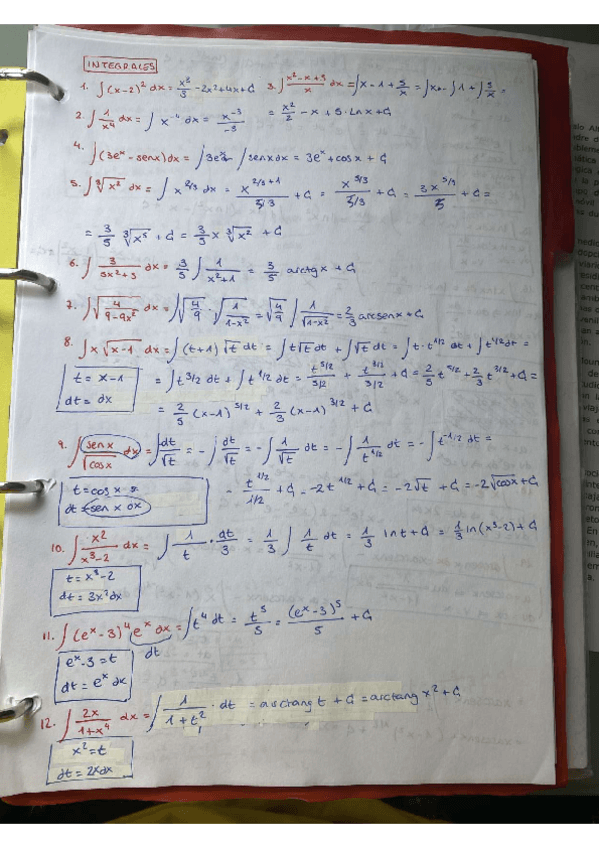 INTEGRALES
1. ∫(x-2)² dx = x³/3 - 2x² + 4x + C 3. ∫ (x²-x+5)/x dx = ∫x - 1 + 5/x = ∫x - ∫1 + ∫5/x =
2. ∫ 1/x⁴ dx = ∫ x⁻⁴ dx = x⁻³/-3 = x²/2 - x + 5·Lnx + C
4. ∫(3eˣ - senx)dx = ∫3eˣ - ∫senxdx = 3eˣ + cosx + C
5. ∫ ∛x² dx = ∫ x^2/3 dx = x^(2/3+1)/(5/3) + C = x^(5/3)/(5/3) + C = 3x^(5/3)/5 + C =
= 3/5 ∛x⁵ + C = 3/5 x ∛x² + C
6. ∫ 3/(5x²+5) dx = 3/5 ∫ 1/(x²+1) = 3/5 arctgx + C
7. ∫√(4/(9-9x²)) dx = ∫√(4/9) · √(1/(1-x²)) = √(4/9) ∫ 1/√(1-x²) = 2/3 arcsenx + C
8. ∫ x √(x-1) dx = ∫(t+1) √t dt = ∫t√t dt + ∫√t dt = ∫t·t^1/2 dt + ∫t^1/2 dt =
t = x-1
dt = dx
= ∫t^3/2 dt + ∫t^1/2 dt = t^(5/2)/(5/2) + t^(3/2)/(3/2) + C = 2/5 t^5/2 + 2/3 t^3/2 + C =
= 2/5 (x-1)^5/2 + 2/3 (x-1)^3/2 + C
9. ∫ senx/√cosx dx = ∫ dt/√t = -∫ dt/√t = -∫ 1/√t dt = -∫ 1/t^1/2 dt = -∫t^-1/2 dt =
t = cosx
dt = senx dx
- t^(1/2)/(1/2) + C - 2t^1/2 + C = -2√t + C = -2√cosx + C
10. ∫ x²/(x³-2) dx = ∫ 1/t · dt/3 = 1/3 ∫ 1/t dt = 1/3 lnt + C = 1/3 ln(x³-2) + C
t = x³-2
dt = 3x²dx
11. ∫(eˣ-3)⁴ eˣ dx = ∫t⁴ dt = t⁵/5 = (eˣ-3)⁵/5 + C
dt
eˣ-3 = t
dt = eˣ dx
12. ∫ 2x/(1+x⁴) dx = ∫ 1/(1+t²) · dt = arctang t + C = arctang x² + C
x² = t
dt = 2xdx